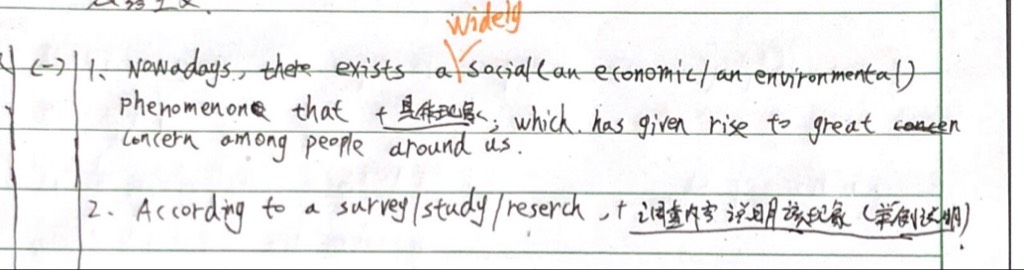 widely
(一) 1、Nowadays, there exists a social (an economic/an environmental)
phenomenon that + 具体现象, which has given rise to great concen
concern among people around us.
2. According to a survey/study/reserch, + 调查内容 说明该现象 (举例说明)